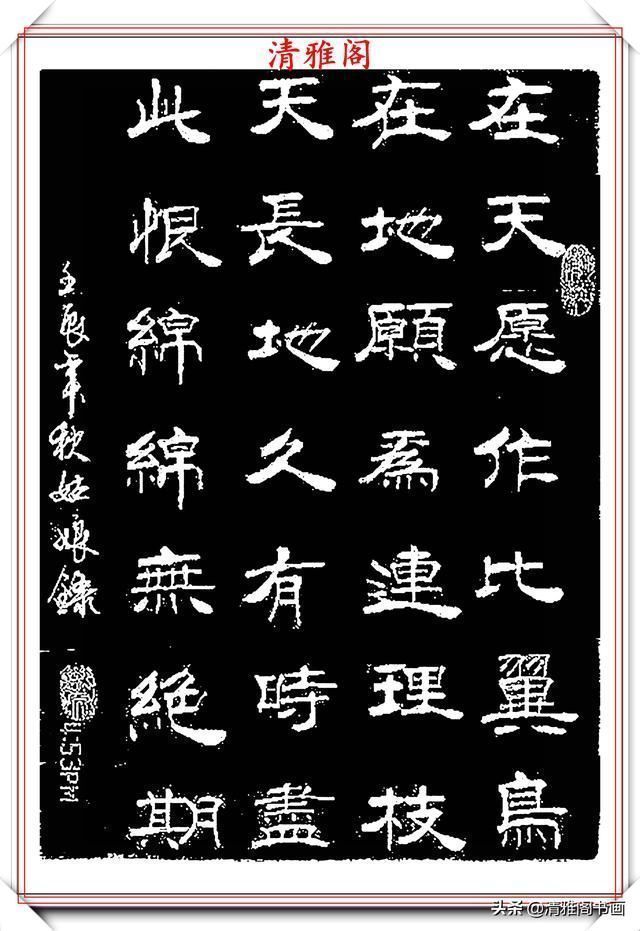 清雅阁
在天愿作比翼鳥
在地願為連理枝
天長地久有時盡
此恨綿綿無絕期
壬辰年秋姑娘錄
4:53PM
头条 @清雅阁书画